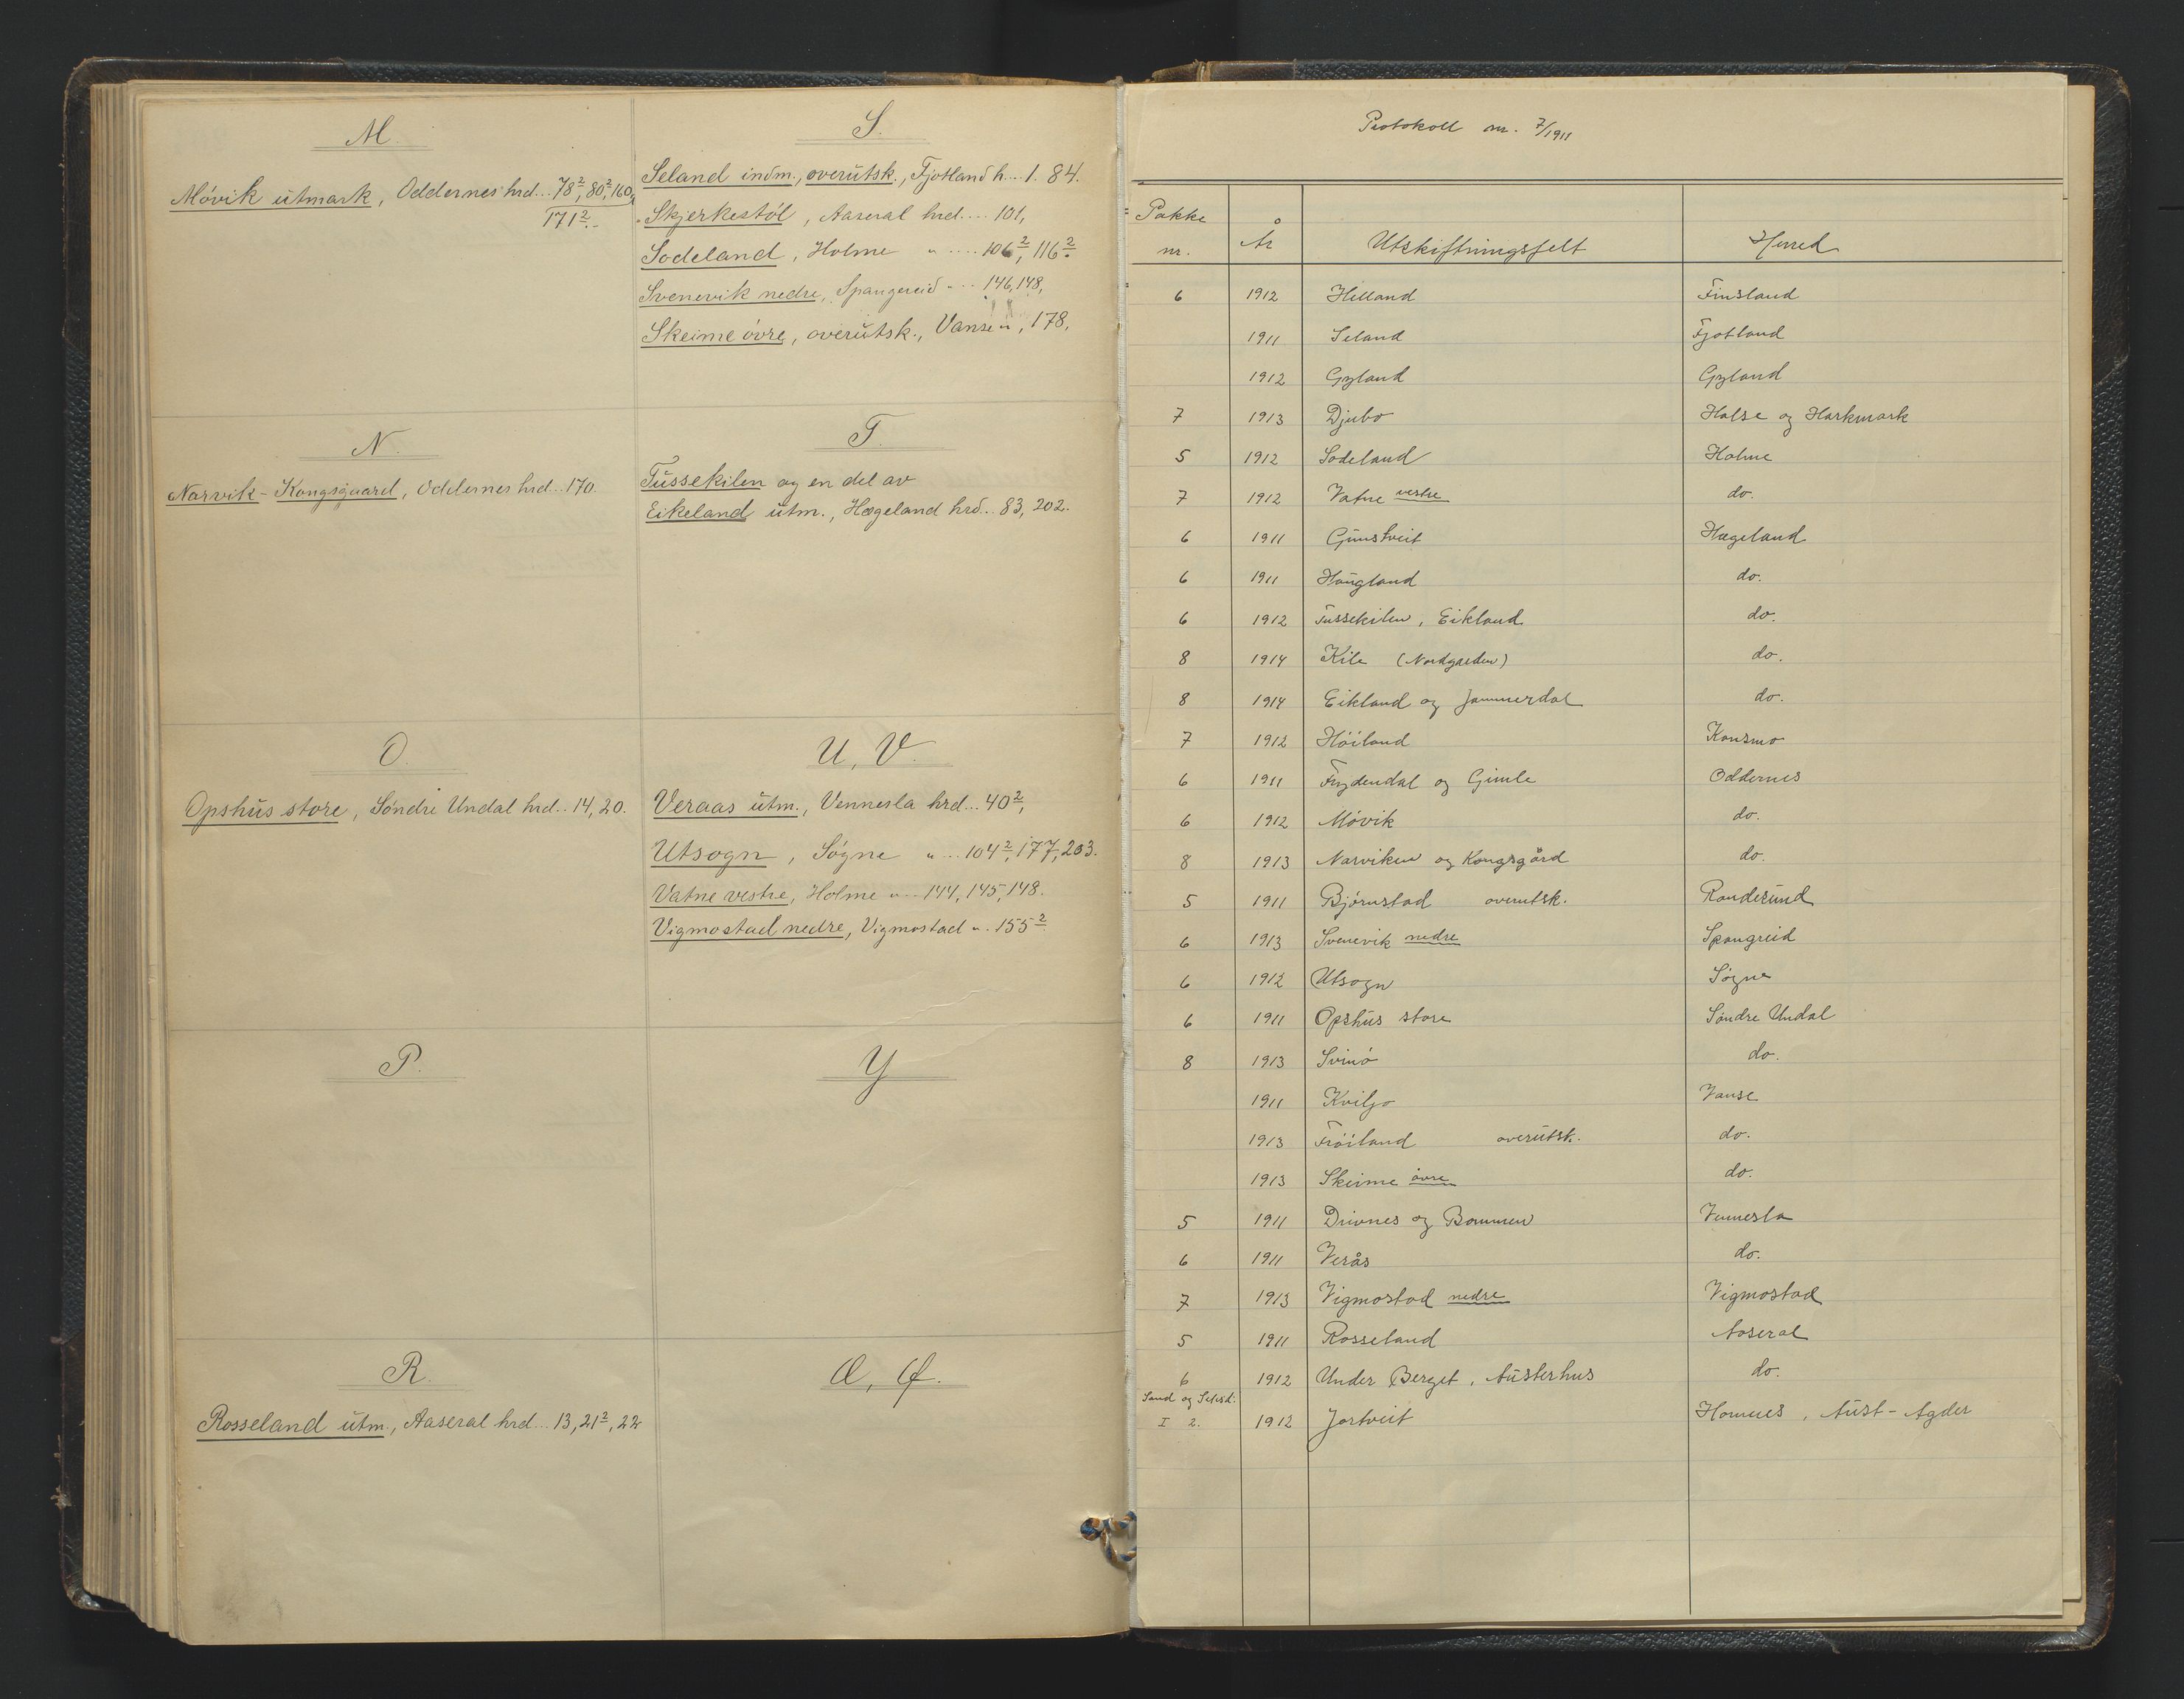 M.
Móvik útmark, Oddernes hrd... 78², 80², 160,
171².-
N.
Narvik - Kongsgaard, Oddernes hrd... 170.
O.
Opshús store, Søndre Undal hrd... 14, 20.
P.
R.
Rosseland útm., Aaseral hrd... 13, 21², 22
S.
Seland indm., overútsk., Fjotland h... 1. 84.
Skjerkestól, Aaseral hrd.... 101,
Sodeland, Holme " ..... 106², 116².
Svenevik nedre, Spangereid " .. 146, 148,
Skeime óvre, overútsk., Vanse ", 178,
T.
Tússekilen og en del av
Eikeland útm., Hægeland hrd... 83, 202.
U, V.
Veraas útm., Vennesla hrd... 40²,
Utsogn, Søgne " ... 104², 177, 203.
Vatne vestre, Holme " ... 144, 145, 148.
Vigmostad nedre, Vigmostad ". 155²
Y
Æ, Ø.
Protokoll nr. 7/1911
Pakke nr. År Utskiftningsfelt Herred
6 1912 Hilland Finsland
1911 Seland Fjotland
1912 Gyland Gyland
7 1913 Djubo Halse og Harkmark
5 1912 Sodeland Holme
7 1912 Vatne vestre do.
6 1911 Gúnstveit Hægeland
6 1911 Haúgland do.
6 1912 Tussekilen, Eikland do.
8 1914 Kile (Nordgarden) do.
8 1914 Eikland og Jammerdal do.
7 1912 Höiland Konsmo
6 1911 Frydendal og Gimle Oddernes
6 1912 Móvik do.
8 1913 Narviken og Kongsgård do.
5 1911 Bjørnstad overutsk. Randesúnd
6 1913 Svenevik nedre Spangreid
6 1912 Utsogn Søgne
6 1911 Opshús store Søndre Undal
8 1913 Svinó do.
1911 Kviljo Vanse
1913 Fröiland overútsk. do.
1913 Skeime óvre do.
5 1911 Drivnes og Bommen Vennesla
6 1911 Verås do.
7 1913 Vigmostad nedre Vigmostad
5 1911 Rosseland Åseral
6 1912 Under Berget, Aústerhus do.
Sand og Setesd.
I 2. 1912 Jortveit Hommes, Aúst-Agder